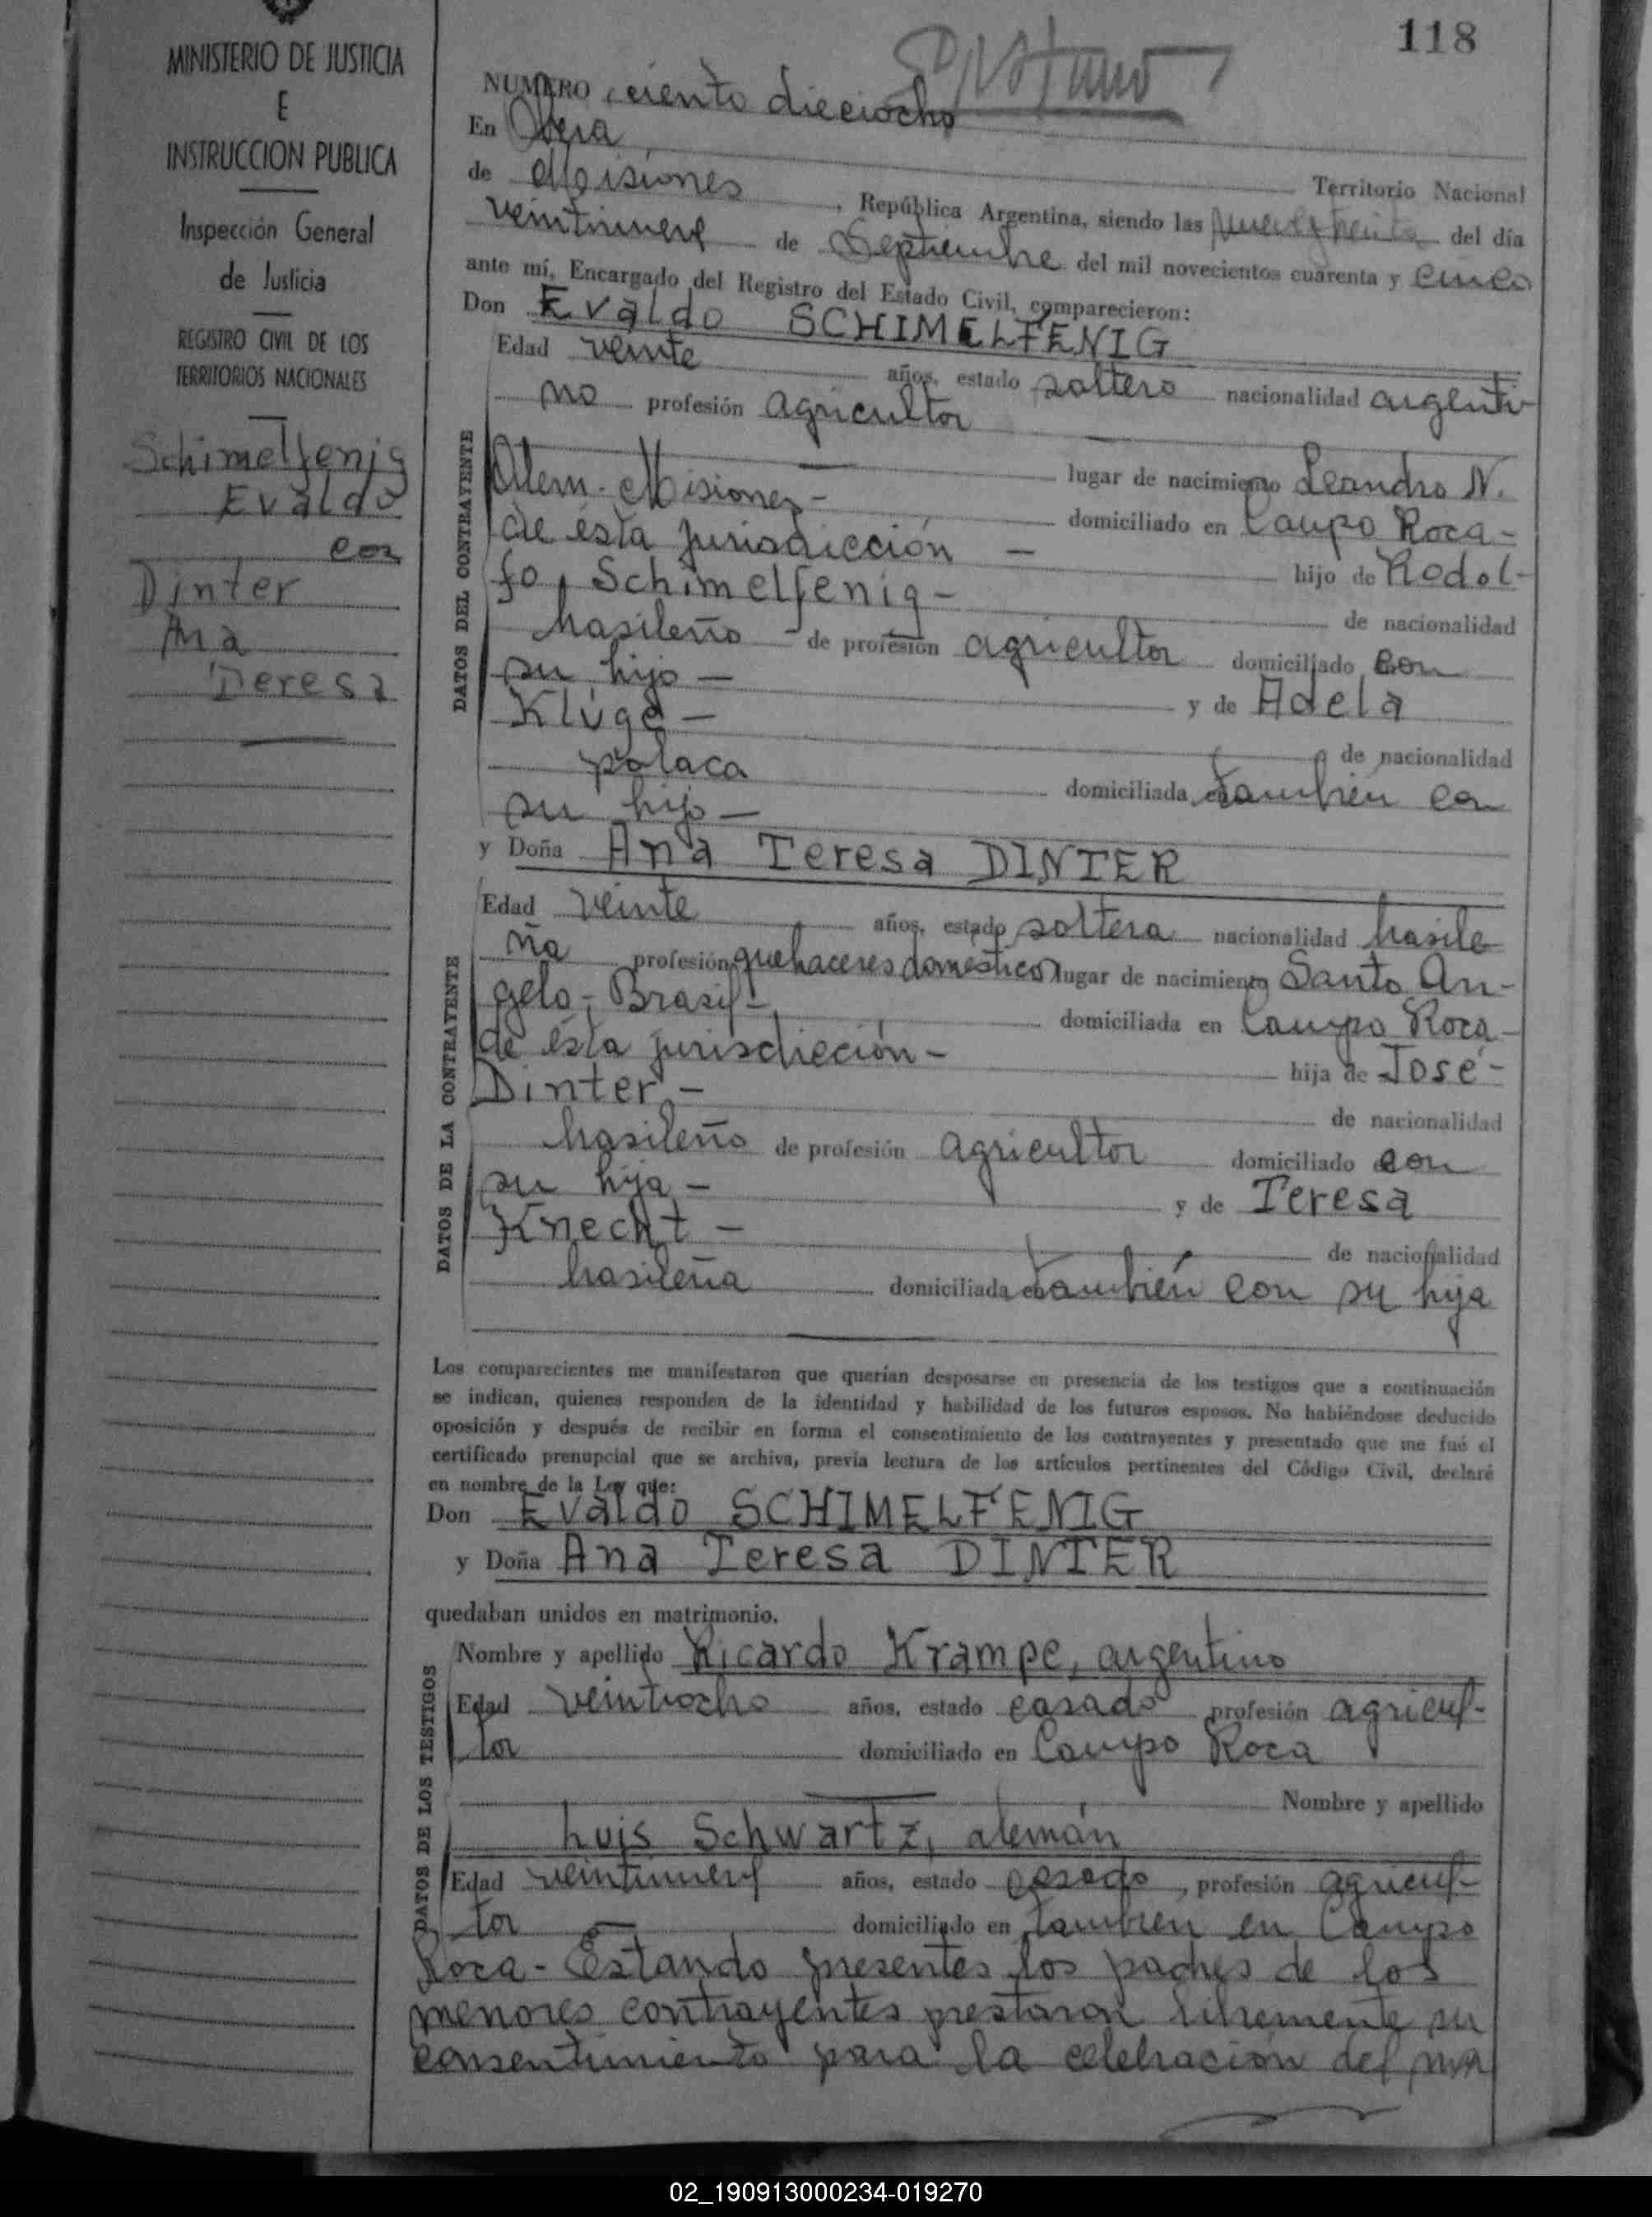 MINISTERIO DE JUSTICIA
E
INSTRUCCION PUBLICA
Inspección General
de Justicia
REGISTRO CIVIL DE LOS
TERRITORIOS NACIONALES
Schimelfenig
Evaldo
con
Dinter
Ana
Teresa
118
NUMERO ciento dieciocho
En Obera
Territorio Nacional
de Misiones, República Argentina, siendo las nueve y treinta del día
veintinueve de Septiembre del mil novecientos cuarenta y cinco
ante mí, Encargado del Registro del Estado Civil, comparecieron:
Don Evaldo SCHIMELFENIG
Edad veinte años, estado soltero nacionalidad argenti-
no profesión agricultor
DATOS DEL CONTRAYENTE
lugar de nacimiento Leandro N.
Alem. Misiones -
domiciliado en Campo Roca -
de ésta jurisdicción -
hijo de Rodol-
fo, Schimelfenig -
de nacionalidad
brasileño - de profesión agricultor domiciliado con
su hijo -
y de Adela
Kluge -
de nacionalidad
polaca domiciliada en también con
su hijo -
y Doña Ana Teresa DINTER
Edad veinte años, estado soltera nacionalidad brasile-
ña profesión quehaceres domésticos lugar de nacimiento Santo An-
gelo - Brasil -
DATOS DE LA CONTRAYENTE
domiciliada en Campo Roca -
de ésta jurisdicción -
hija de José -
Dinter -
de nacionalidad
brasileño de profesión agricultor domiciliado con
su hija -
y de Teresa
Knecht -
de nacionalidad
brasileña domiciliada en también con su hija
Los comparecientes me manifestaron que querían desposarse en presencia de los testigos que a continuación
se indican, quienes responden de la identidad y habilidad de los futuros esposos. No habiéndose deducido
oposición y después de recibir en forma el consentimiento de los contrayentes y presentado que me fué el
certificado prenupcial que se archiva, previa lectura de los artículos pertinentes del Código Civil, declaré
en nombre de la Ley que:
Don Evaldo SCHIMELFENIG
y Doña Ana Teresa DINTER
quedaban unidos en matrimonio.
DATOS DE LOS TESTIGOS
Nombre y apellido Ricardo Krampe, argentino
Edad veintiocho años, estado casado profesión agricul-
tor domiciliado en Campo Roca
Nombre y apellido
Luis Schwartz, alemán
Edad veintinueve años, estado casado, profesión agricul-
tor - domiciliado en también en Campo
Roca - Estando presentes los padres de los
menores contrayentes prestaron libremente su
consentimiento para la celebración del ma
02_190913000234-019270